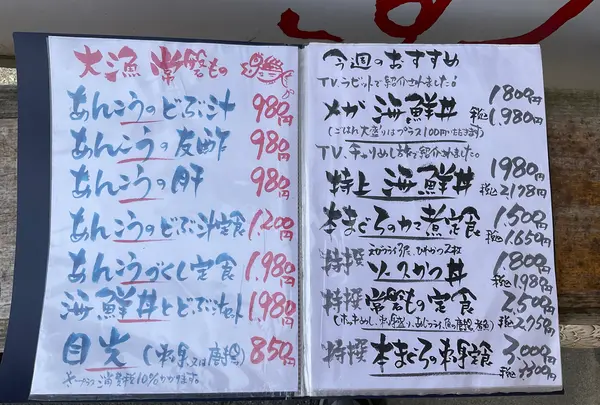 大漁 常磐もの
あんこうのどぶ汁 980円
あんこうの友酢 980円
あんこうの肝 980円
あんこうのどぶ汁定食 1200円
あんこうづくし定食 1,980円
海鮮丼とどぶ汁セット 1,980円
目光(刺身又は唐揚) 850円
消費税10%かかります。
今週のおすすめ
TV.ラビットで紹介されました!
メガ 海鮮丼 1800円 税込1,980円
(ごはん大盛りはプラス100円いただきます)
TV.で紹介されました。
特上 海鮮丼 1980円 税込2,178円
本まぐろのカマ煮定食 1,500円 税込1,650円
特撰 ソースかつ丼 1800円 税込1,980円
えびフライ3尾、ひれかつ2枚
特撰 常磐もの定食 2,500円 税込2,750円
特撰 本まぐろの刺身定食 3,000円 税込3,300円